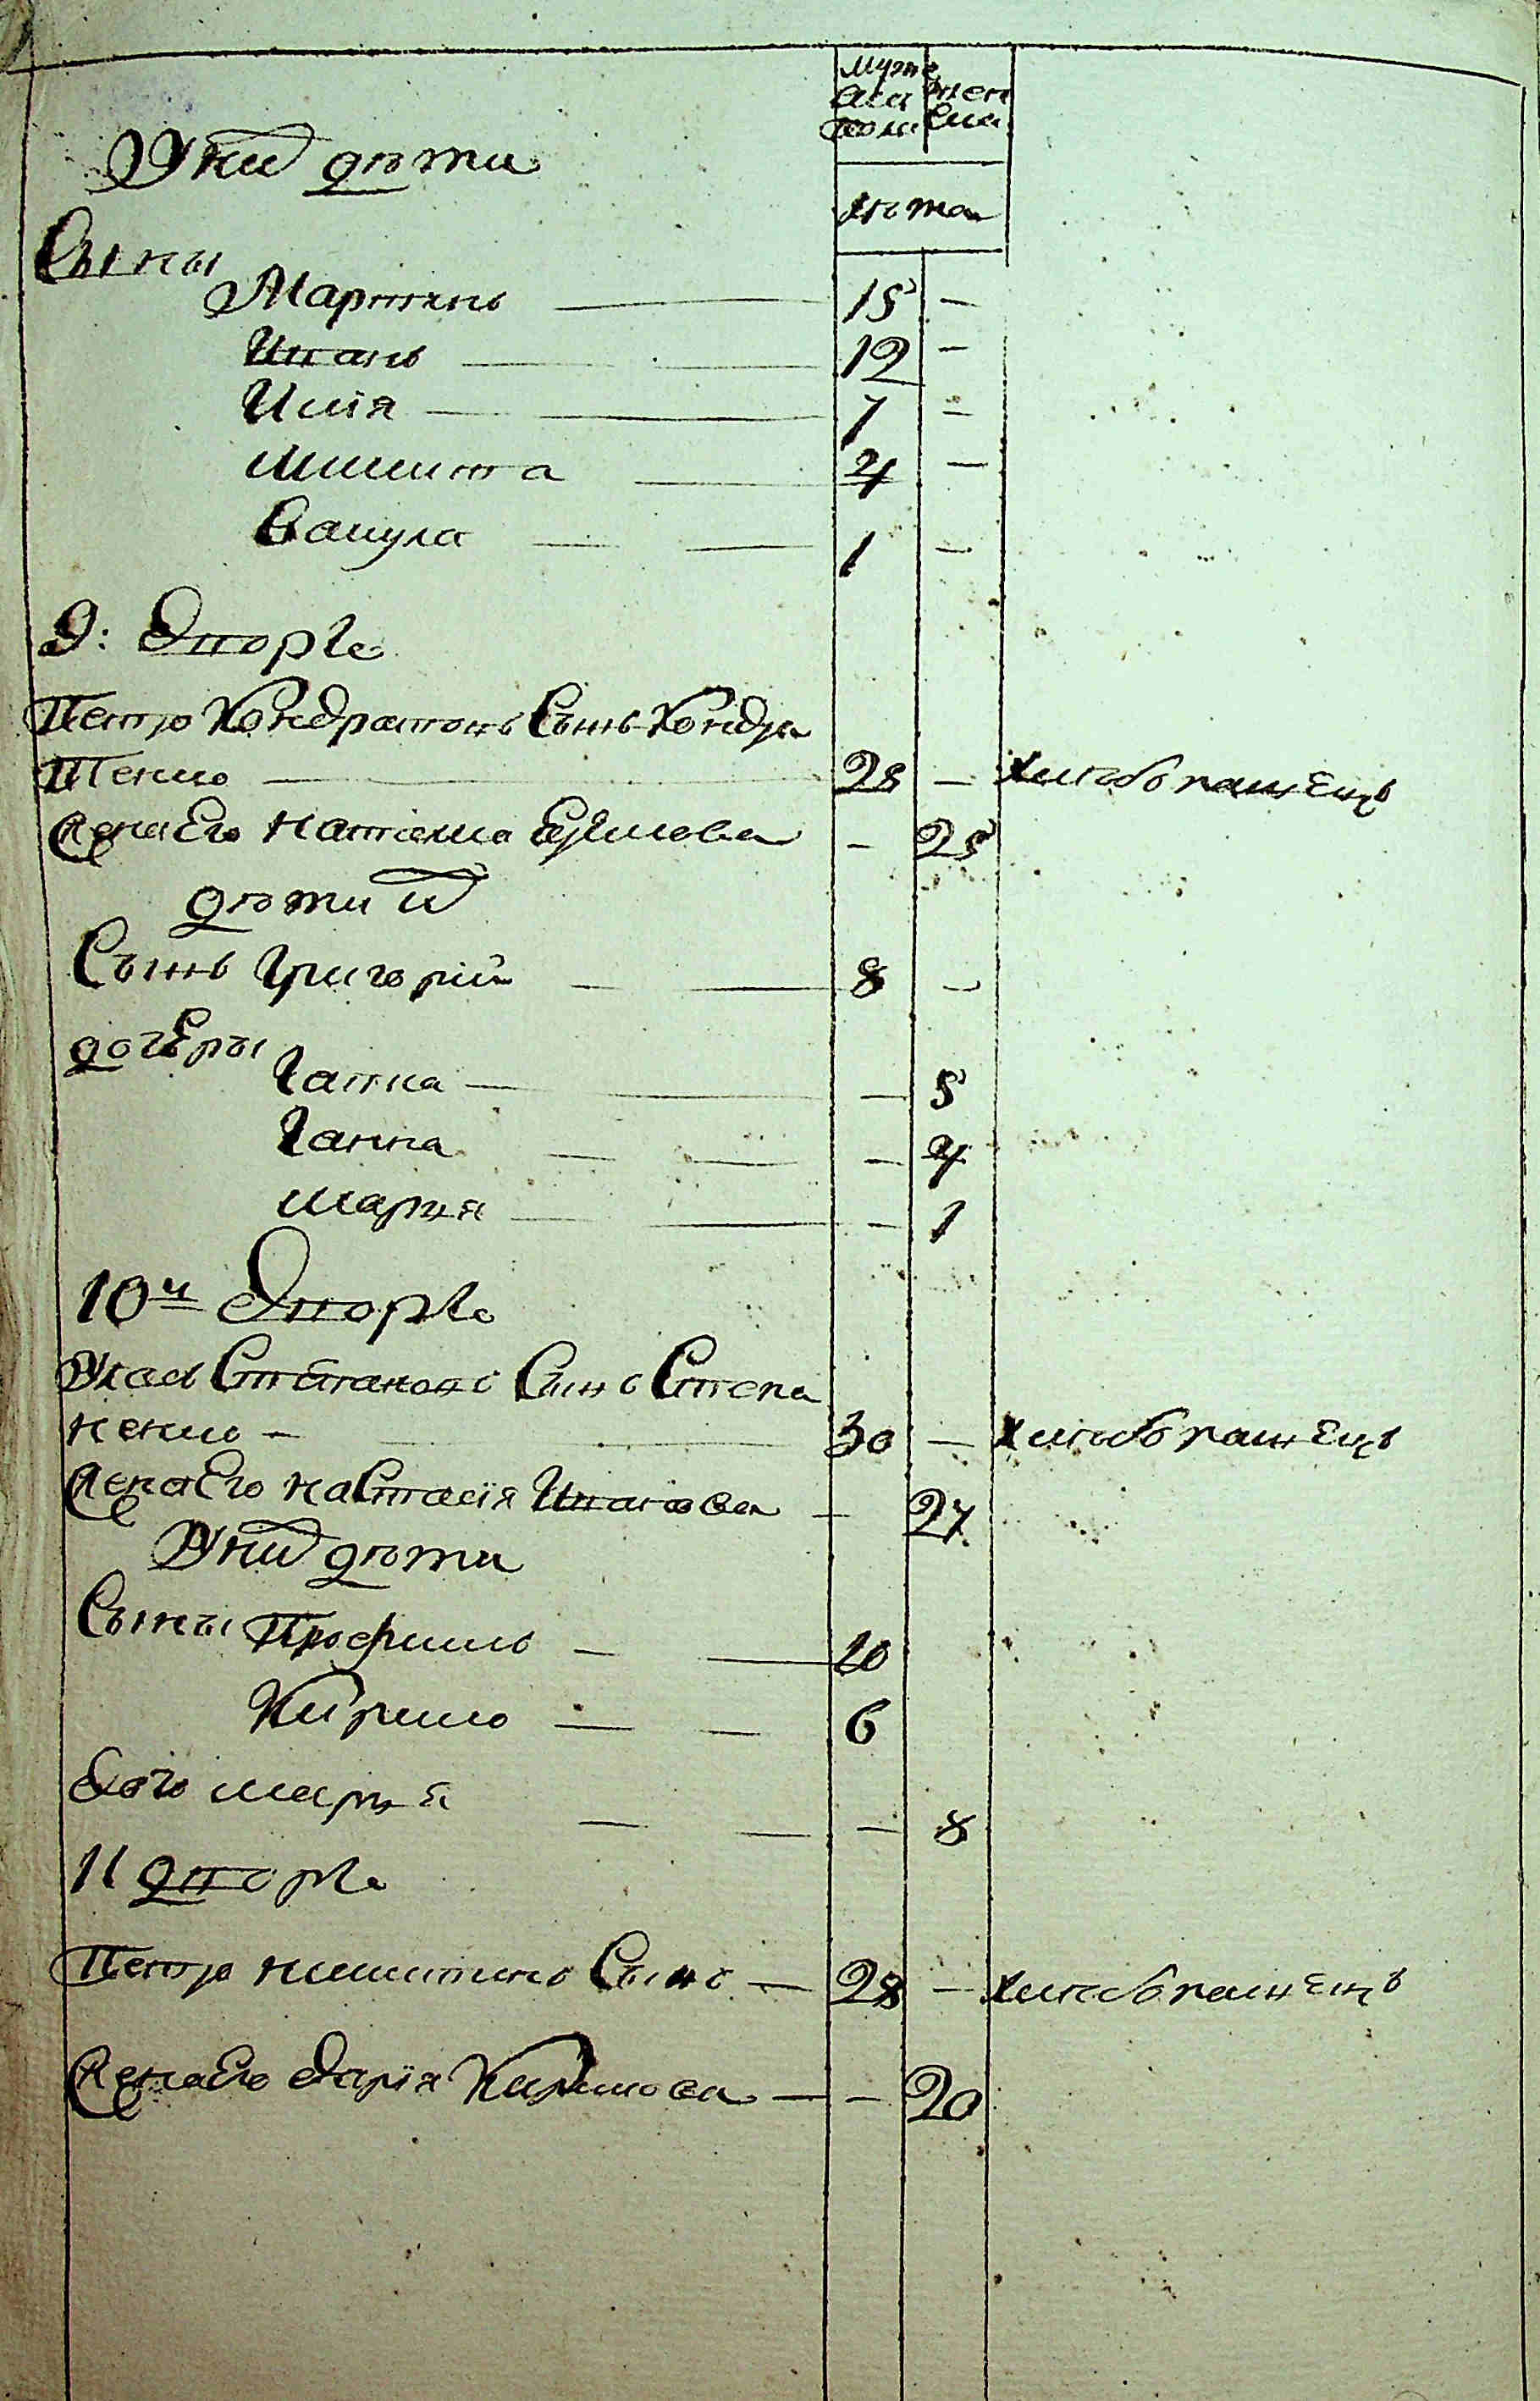 Муже женс
ска ска
пола
лѣта
У них дѣти
Сыны
Мартинъ — 15 —
Иванъ — 12 —
Илія — 7 —
Микита — 4 —
Вакула — 1 —
9: Дворъ
Петро Кондратовъ Сынъ Кондра
тенко — 28 — хлѣбопашецъ
жена Его Наталія — 25
дѣти их
Сынъ Григорій — 8 —
дочеры
Гапка — — 5
Ганна — — 4
Марія — — 1
10й Дворъ
Улас Степановъ Синъ Степа
ненко — 30 — хлѣбопашецъ
жена Его Настасія Иванова — 27
У них дѣти
Сыны Трофимъ — 10
Кирило — 6
дочь Марія — — 8
11 дворъ
Петро Никитинъ Сынъ — 28 — хлѣбопашецъ
жена Его Дарія Кирилова — — 20